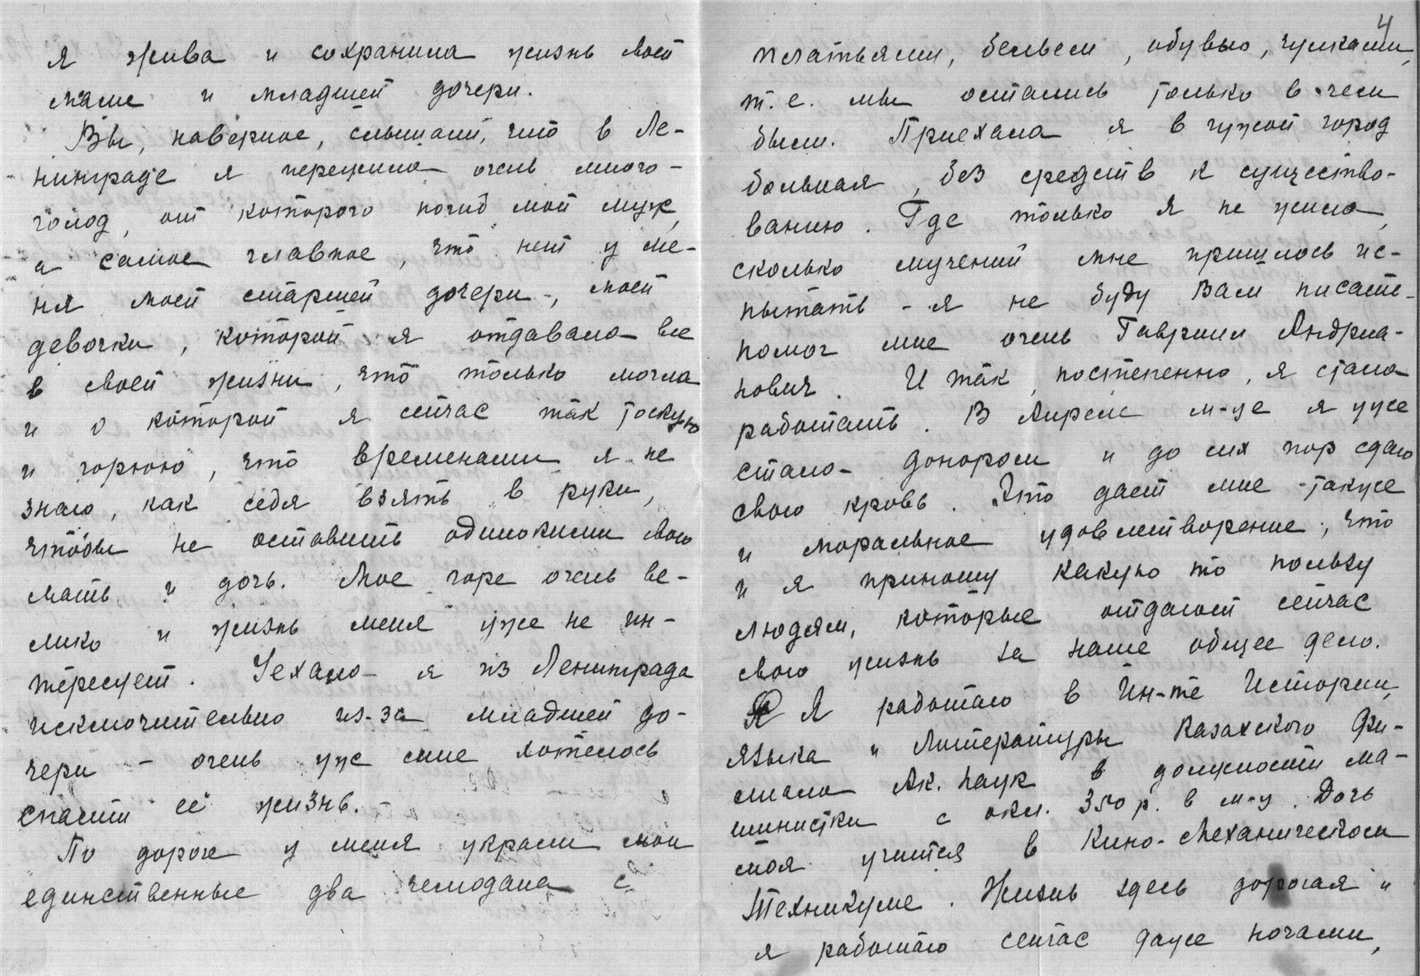 я жива и сохранила жизнь своей
маме и младшей дочери.
Вы, наверное, слышали, что в Ле-
нинграде я пережила очень много -
голод, от которого погиб мой муж,
а самое главное, что нет у ме-
ня моей старшей дочери -, моей
девочки, которой я отдавала все
в своей жизни, что только могла
и о которой я сейчас так тоскую
и горюю, что временами я не
знаю, как себя взять в руки,
чтобы не оставить одинокими свою
мать и дочь. Мое горе очень ве-
лико и жизнь меня уже не ин-
тересует. Уехала я из Ленинграда
исключительно из-за младшей до-
чери - очень уж мне хотелось
спасти её жизнь.
По дороге у меня украли мои
единственные два чемодана с
4
платьями, бельем, обувью, чулками,
т.е. мы остались только в чем
были. Приехала я в чужой город
больная, без средств к существо-
ванию. Где только я не жила,
сколько мучений мне пришлось ис-
пытать - я не буду Вам писать -
помог мне очень Гавриил Андриа-
нович. И так, постепенно, я стала
работать. В Апреле м-це я уже
стала донором и до сих пор сдаю
свою кровь. Это дает мне также
и моральное удовлетворение, что
и я приношу какую то пользу
людям, которые отдают сейчас
свою жизнь за наше общее дело.
Я работаю в Ин-те Истории,
языка и Литературы Казахского Фи-
лиала Ак. Наук в должности ма-
шинистки с окл. 350 р. в м-ц. Дочь
моя учится в Кино-Механическом
Техникуме. Жизнь здесь дорогая и
я работаю сейчас даже ночами,